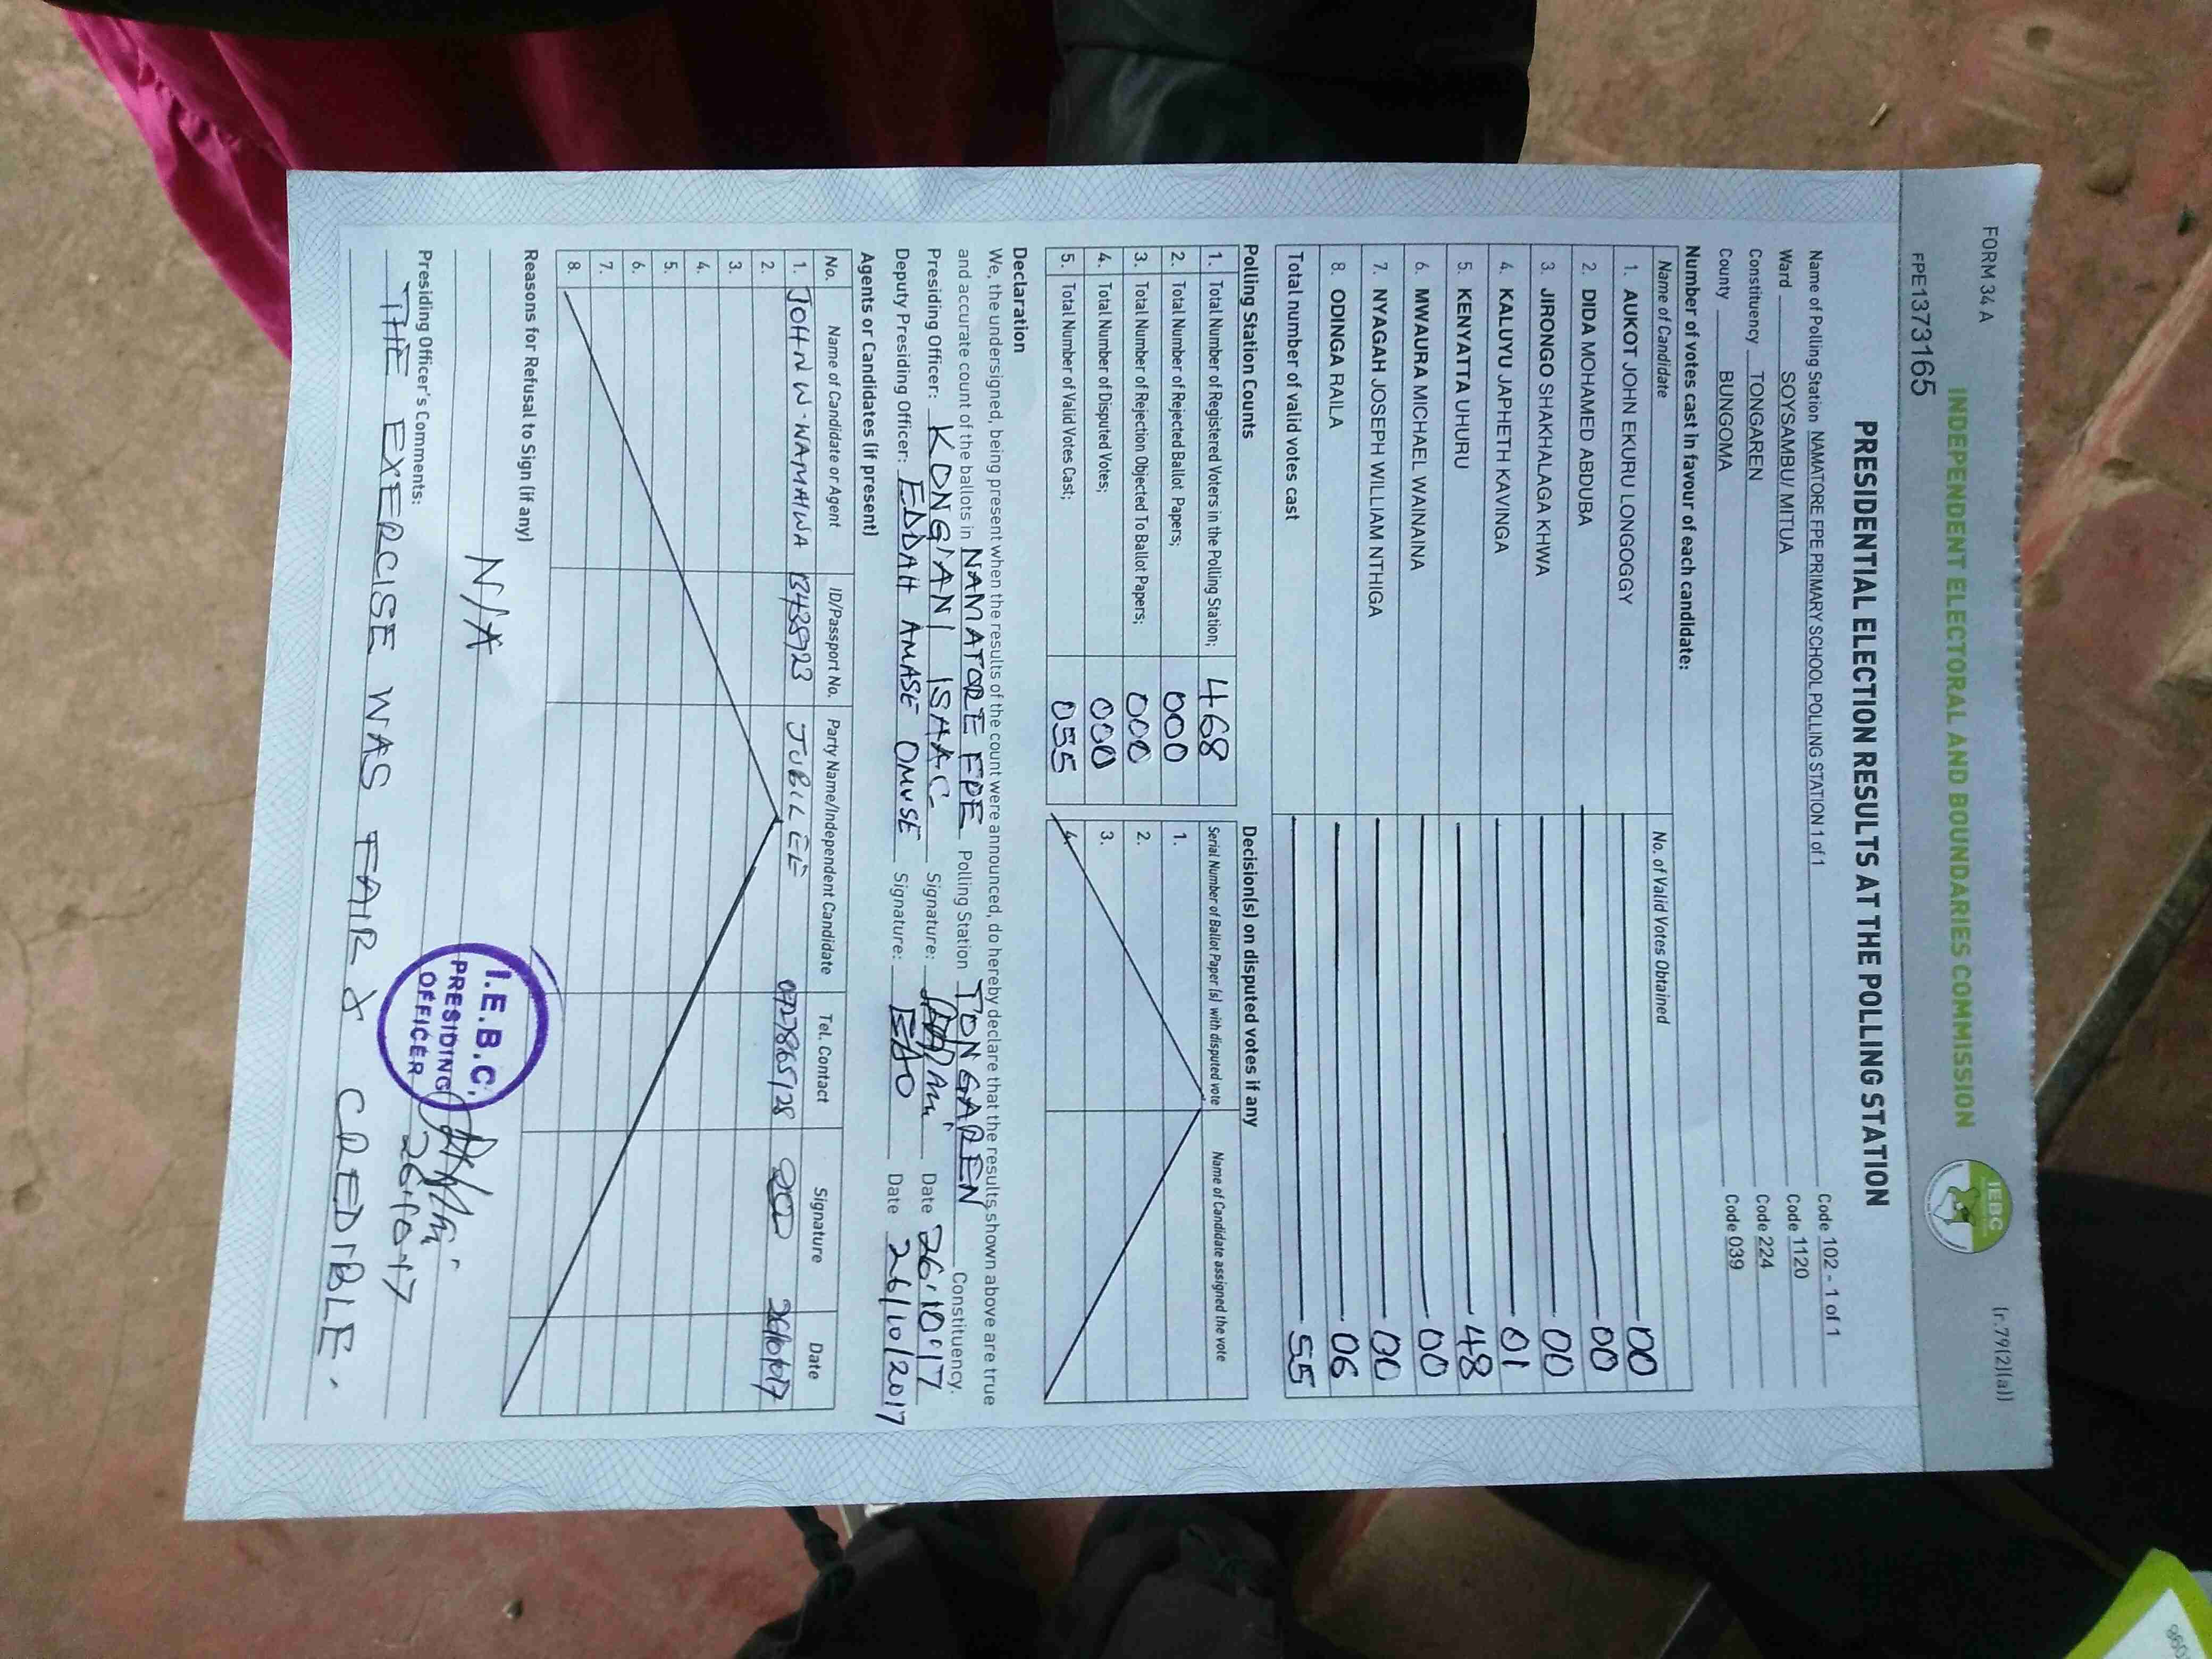 FORM 34 A
(r.79(2)(a))
INDEPENDENT ELECTORAL AND BOUNDARIES COMMISSION
IEBC
FPE1373165
PRESIDENTIAL ELECTION RESULTS AT THE POLLING STATION
Name of Polling Station NAMATORE FPE PRIMARY SCHOOL POLLING STATION 1 of 1 Code 102 - 1 of 1
Ward SOYSAMBU/ MITUA Code 1120
Constituency TONGAREN Code 224
County BUNGOMA Code 039
Number of votes cast in favour of each candidate:
Name of Candidate No. of Valid Votes Obtained
1. AUKOT JOHN EKURU LONGOGGY 00
2. DIDA MOHAMED ABDUBA 00
3. JIRONGO SHAKHALAGA KHWA 00
4. KALUYU JAPHETH KAVINGA 01
5. KENYATTA UHURU 48
6. MWAURA MICHAEL WAINAINA 00
7. NYAGAH JOSEPH WILLIAM NTHIGA 00
8. ODINGA RAILA 06
Total number of valid votes cast 55
Polling Station Counts
1. Total Number of Registered Voters in the Polling Station; 468
2. Total Number of Rejected Ballot Papers; 000
3. Total Number of Rejection Objected To Ballot Papers; 000
4. Total Number of Disputed Votes; 000
5. Total Number of Valid Votes Cast; 055
Decision(s) on disputed votes if any
Serial Number of Ballot Paper (s) with disputed vote Name of Candidate assigned the vote
1.
2.
3.
4.
Declaration
We, the undersigned, being present when the results of the count were announced, do hereby declare that the results shown above are true
and accurate count of the ballots in NAMATORE FPE Polling Station TONGAREN Constituency.
Presiding Officer: KONGIANI ISAAC Signature: Date 26.10.17
Deputy Presiding Officer: EDDAH AMASE OMUSE Signature: EAO Date 26/10/2017
Agents or Candidates (if present)
No. Name of Candidate or Agent ID/Passport No. Party Name/Independent Candidate Tel. Contact Signature Date
1. JOHN W. WAMALWA 13438923 JUBILEE 0727865128 26/10/017
2.
3.
4.
5.
6.
7.
8.
Reasons for Refusal to Sign (if any)
N/A
Presiding Officer's Comments:
THE EXERCISE WAS FAIR & CREDIBLE.
I.E.B.C.
PRESIDING
OFFICER
26.10.17